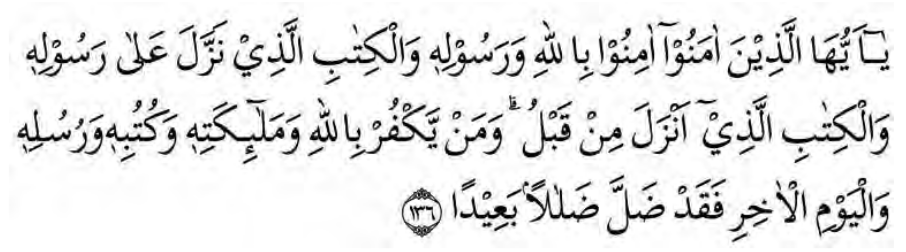 يٰٓاَ يُّهَا الَّذِيْنَ اٰمَنُوْٓا اٰمِنُوْا بِا للّٰهِ وَرَسُوْلِهٖ وَالْكِتٰبِ الَّذِيْ نَزَّلَ عَلٰى رَسُوْلِهٖ
وَالْكِتٰبِ الَّذِيْٓ اَنْزَلَ مِنْ قَبْلُ ۗ وَمَنْ يَّكْفُرْ بِا للّٰهِ وَمَلٰٓئِكَتِهٖ وَكُتُبِهٖ وَرُسُلِهٖ
وَالْيَوْمِ الْاٰخِرِ فَقَدْ ضَلَّ ضَلٰلاًۢ بَعِيْدًا ﴿١٣٦﴾